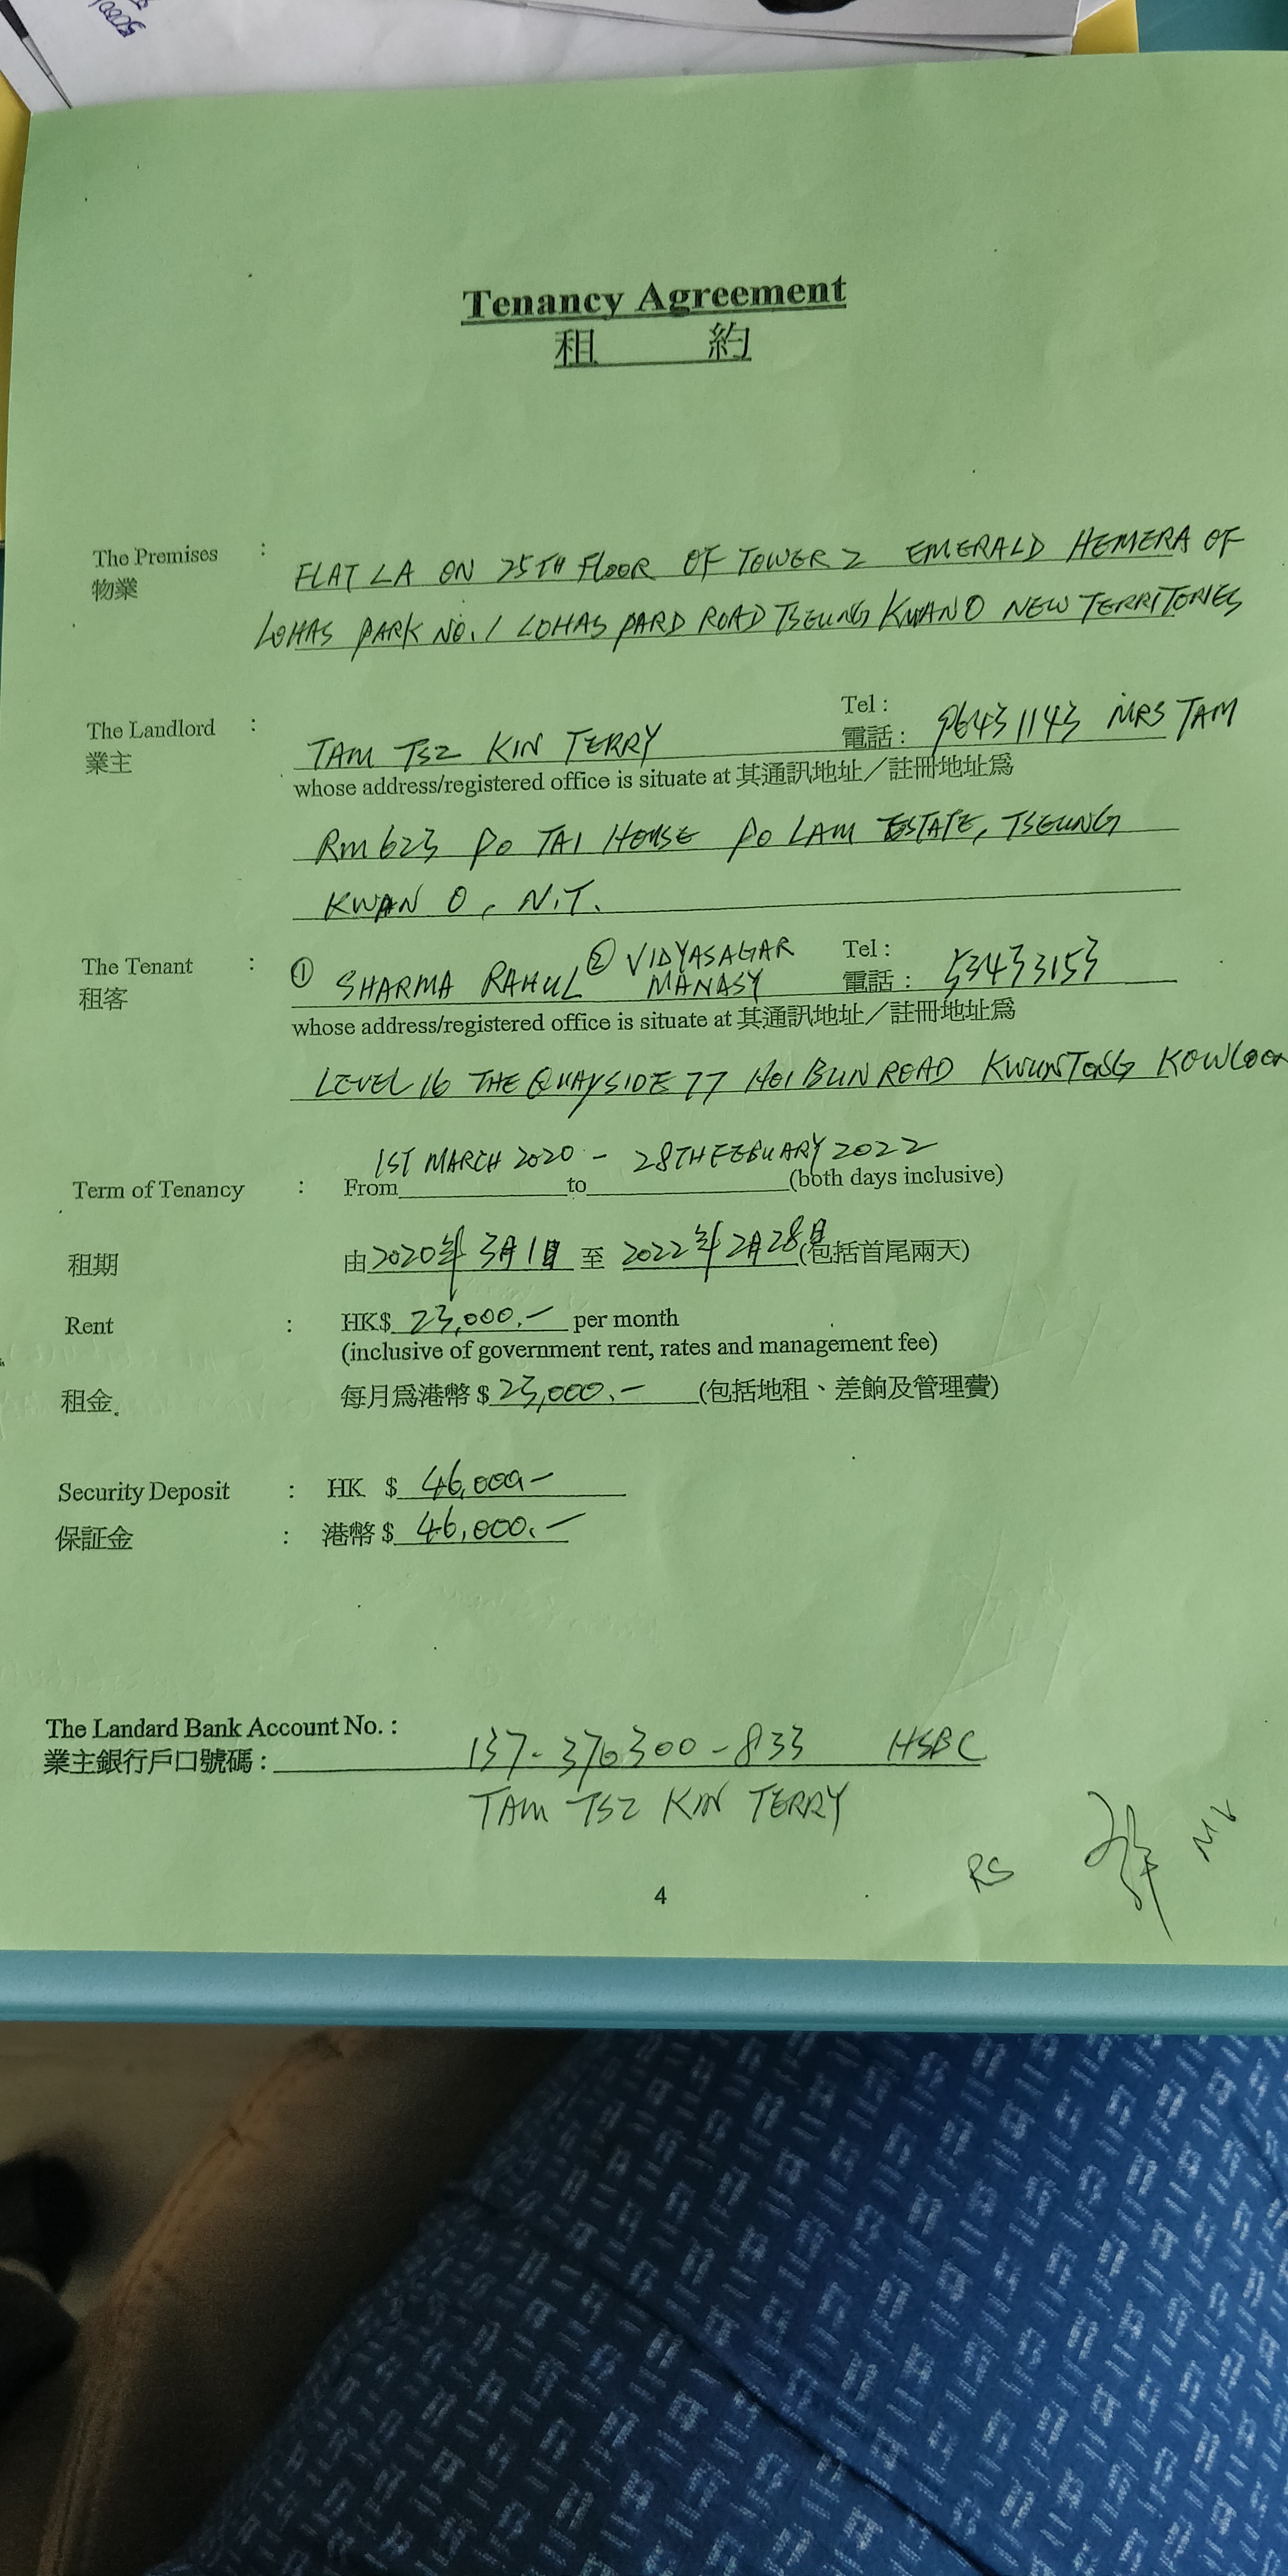 Tenancy Agreement
租 約
The Premises :
物業
FLAT LA ON 25TH FLOOR OF TOWER 2 EMERALD HEMERA OF
LOHAS PARK NO. 1 LOHAS PARD ROAD TSEUNG KWAN O NEW TERRITORIES
The Landlord : TAM TSZ KIN TERRY Tel : 96431143 MRS TAM
業主 電話 :
whose address/registered office is situate at 其通訊地址／註冊地址爲
Rm 623 PO TAI HOUSE PO LAM ESTATE, TSEUNG
KWAN O, N.T.
The Tenant : ① SHARMA RAHUL ② VIDYASAGAR MANASY Tel : 53433153
租客 電話 :
whose address/registered office is situate at 其通訊地址／註冊地址爲
LEVEL 16 THE QUAYSIDE 77 HOI BUN ROAD KWUN TONG KOWLOON
1ST MARCH 2020 - 28TH FEBUARY 2022
Term of Tenancy : From to (both days inclusive)
租期 由 2020年 3月 1日 至 2022年 2月 28日 (包括首尾兩天)
Rent : HK$ 23,000.- per month
(inclusive of government rent, rates and management fee)
租金 每月爲港幣 $ 23,000.- (包括地租、差餉及管理費)
Security Deposit : HK $ 46,000-
保証金 : 港幣 $ 46,000.-
The Landard Bank Account No. :
業主銀行戶口號碼 : 137-370300-833 HSBC
TAM TSZ KIN TERRY
RS
4